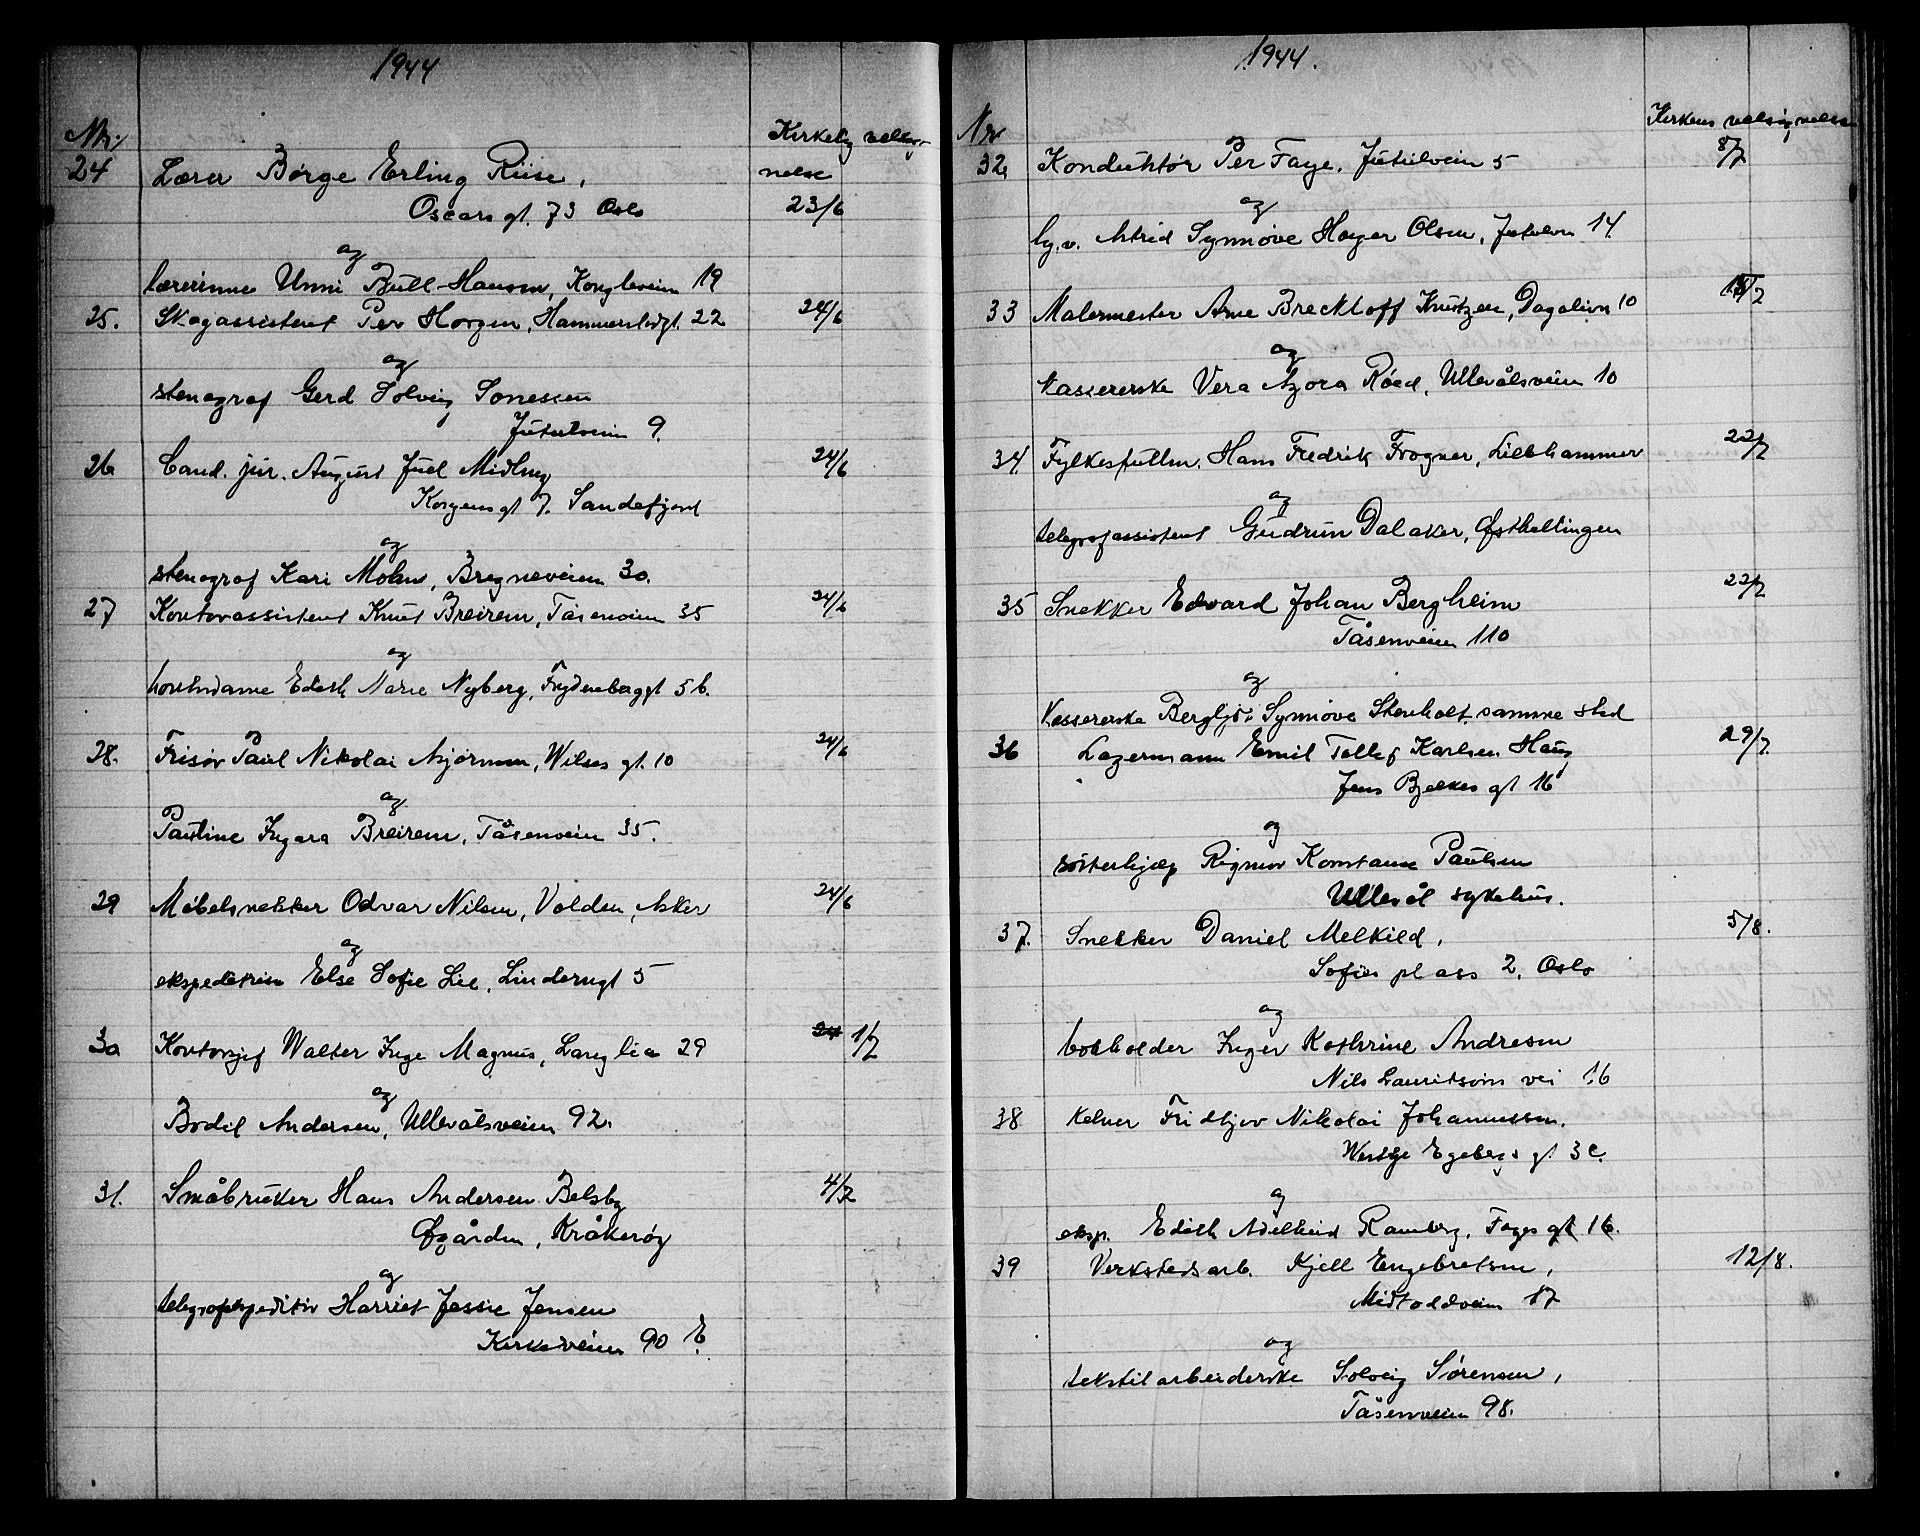 1944
Nr.
Kirkelig velsig-
nelse
24 Lærer Børge Erling Riise,
Oscars gt. 73 Oslo 23/6
og
lærerinne Unni Bull-Hansen, Kongleveien 19
25. Skogassistent Per Horgen, Hammerstadgt. 22 24/6
og
stenograf Gerd Solveig Sonessen
Jutulveien 9.
26 Cand. jur. August Juel 24/6
gt 7. Sandefjord
og
stenograf Kari Mohn, Bregneveien 30.
27 Kontorassistent Knut Breirem, Tåsenveien 35 24/6
og
kontordame Edith Marie Nyberg, Frydenberggt 5 b.
28. Frisør Paul Nikolai Asjørnsen, Wilses gt. 10 24/6
og
Pauline Ingara Breirem, Tåsenveien 35.
29 Møbelsnekker Odvar Nilsen, Volden, Asker 24/6
og
ekspeditrise Else Sofie Lie, Linderngt 5
30 Kontorsjef Walter Inge Magnus, Langlia 29 24 1/7
og
Bodil Andersen, Ullevålsveien 92.
31. Småbruker Hans Andersen Belsby 4/7
Øgården, Kråkerøy
og
telegrafekspeditør Harriet Jessie Jensen
Kirkeveien 90 E.
1944.
Nr
Kirkens velsignelse
32, Konduktør Per Faye, Jutulveien 5 8/7
og
Astrid Synnøve Høyer Olsen, Jutulvn 14.
33 Malermester Arne Breckhoff Knutzen, Dagalivn 10 15/7
og
kassererske Vera Azora Röed, Ullevålsveien 10
34 Fylkesfullm. Hans Fredrik Frogner, Lillehammer 22/7
og
telegrafassistent Gudrun Dalaker, Østhellingen
35 Snekker Edvard Johan Bergheim 22/7
Tåsenveien 110
og
Kassererske Bergljot Synnøve Stenholt, samme sted
36 Lagermann Emil Tollef Karlsen Haug 29/7.
Jens Bjelkes gt 16
og
søsterhjelp Rigmor Konstanse Paulsen
Ullevål sykehus.
37. Snekker Daniel Melkild, 5/8.
Sofies plass 2, Oslo
og
bokholder Inger Kathrine Andresen
Nils Lauritsøns vei 16
38 Kelner Fridtjov Nikolai Johannessen.
Westye Egebergs gt 3c.
og
eksp. Edith Adelheid Ramberg, Fages gt 16.
39 Verkstedsarb. Kjell Engebretsen, 12/8.
Midtoddveien 17
og
tekstilarbeiderske Solveig Sørensen,
Tåsenveien 98.